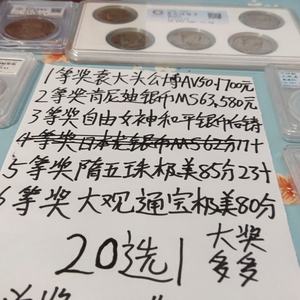 1等奖袁大头公博AV50.1700元
2等奖肯尼迪银币MS63,580元
3等奖自由女神和平银币后铸
4等奖日本龙银币MS62分11十
5等奖隋五珠极美85分23十
6等奖大观通宝极美80分
20选1
大奖
多多